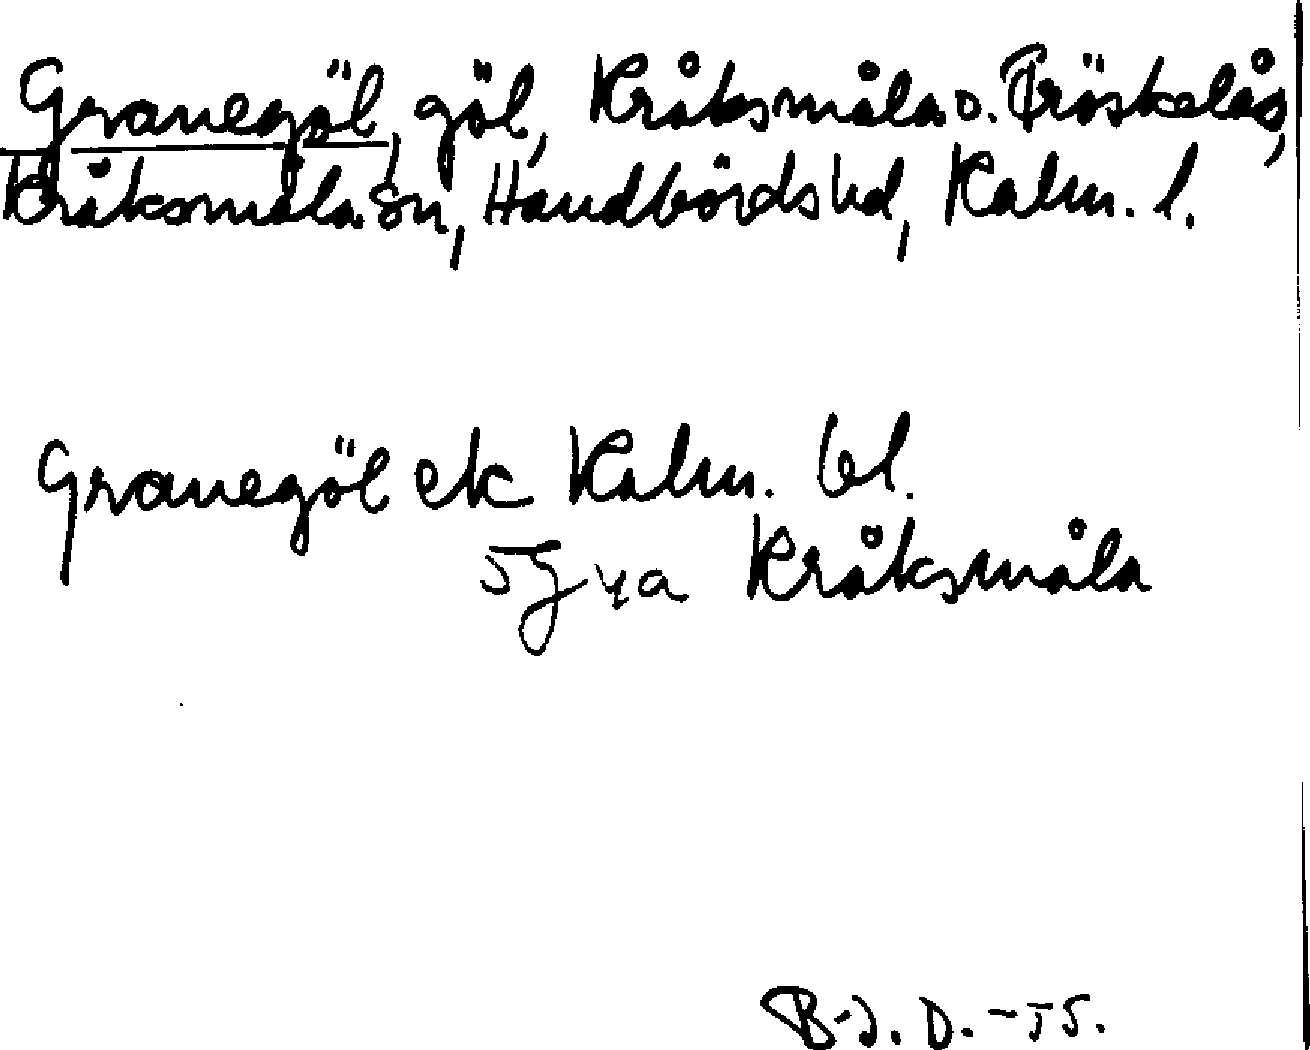 Granegöl, göl, Kråksmåla o. Fröskelås,
Kråksmåla sn, Handbörds hd, Kalm. l.
Granegöl ek Kalm. bl.
5G4a Kråksmåla
B-J. D. -55.